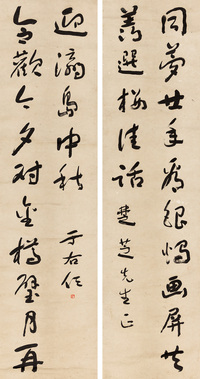 同夢廿年看銀燭画屏共
羨選樓佳話
楚芝先生正
合歡今夕對金樽璧月再
迎瀛島中秋
于右任